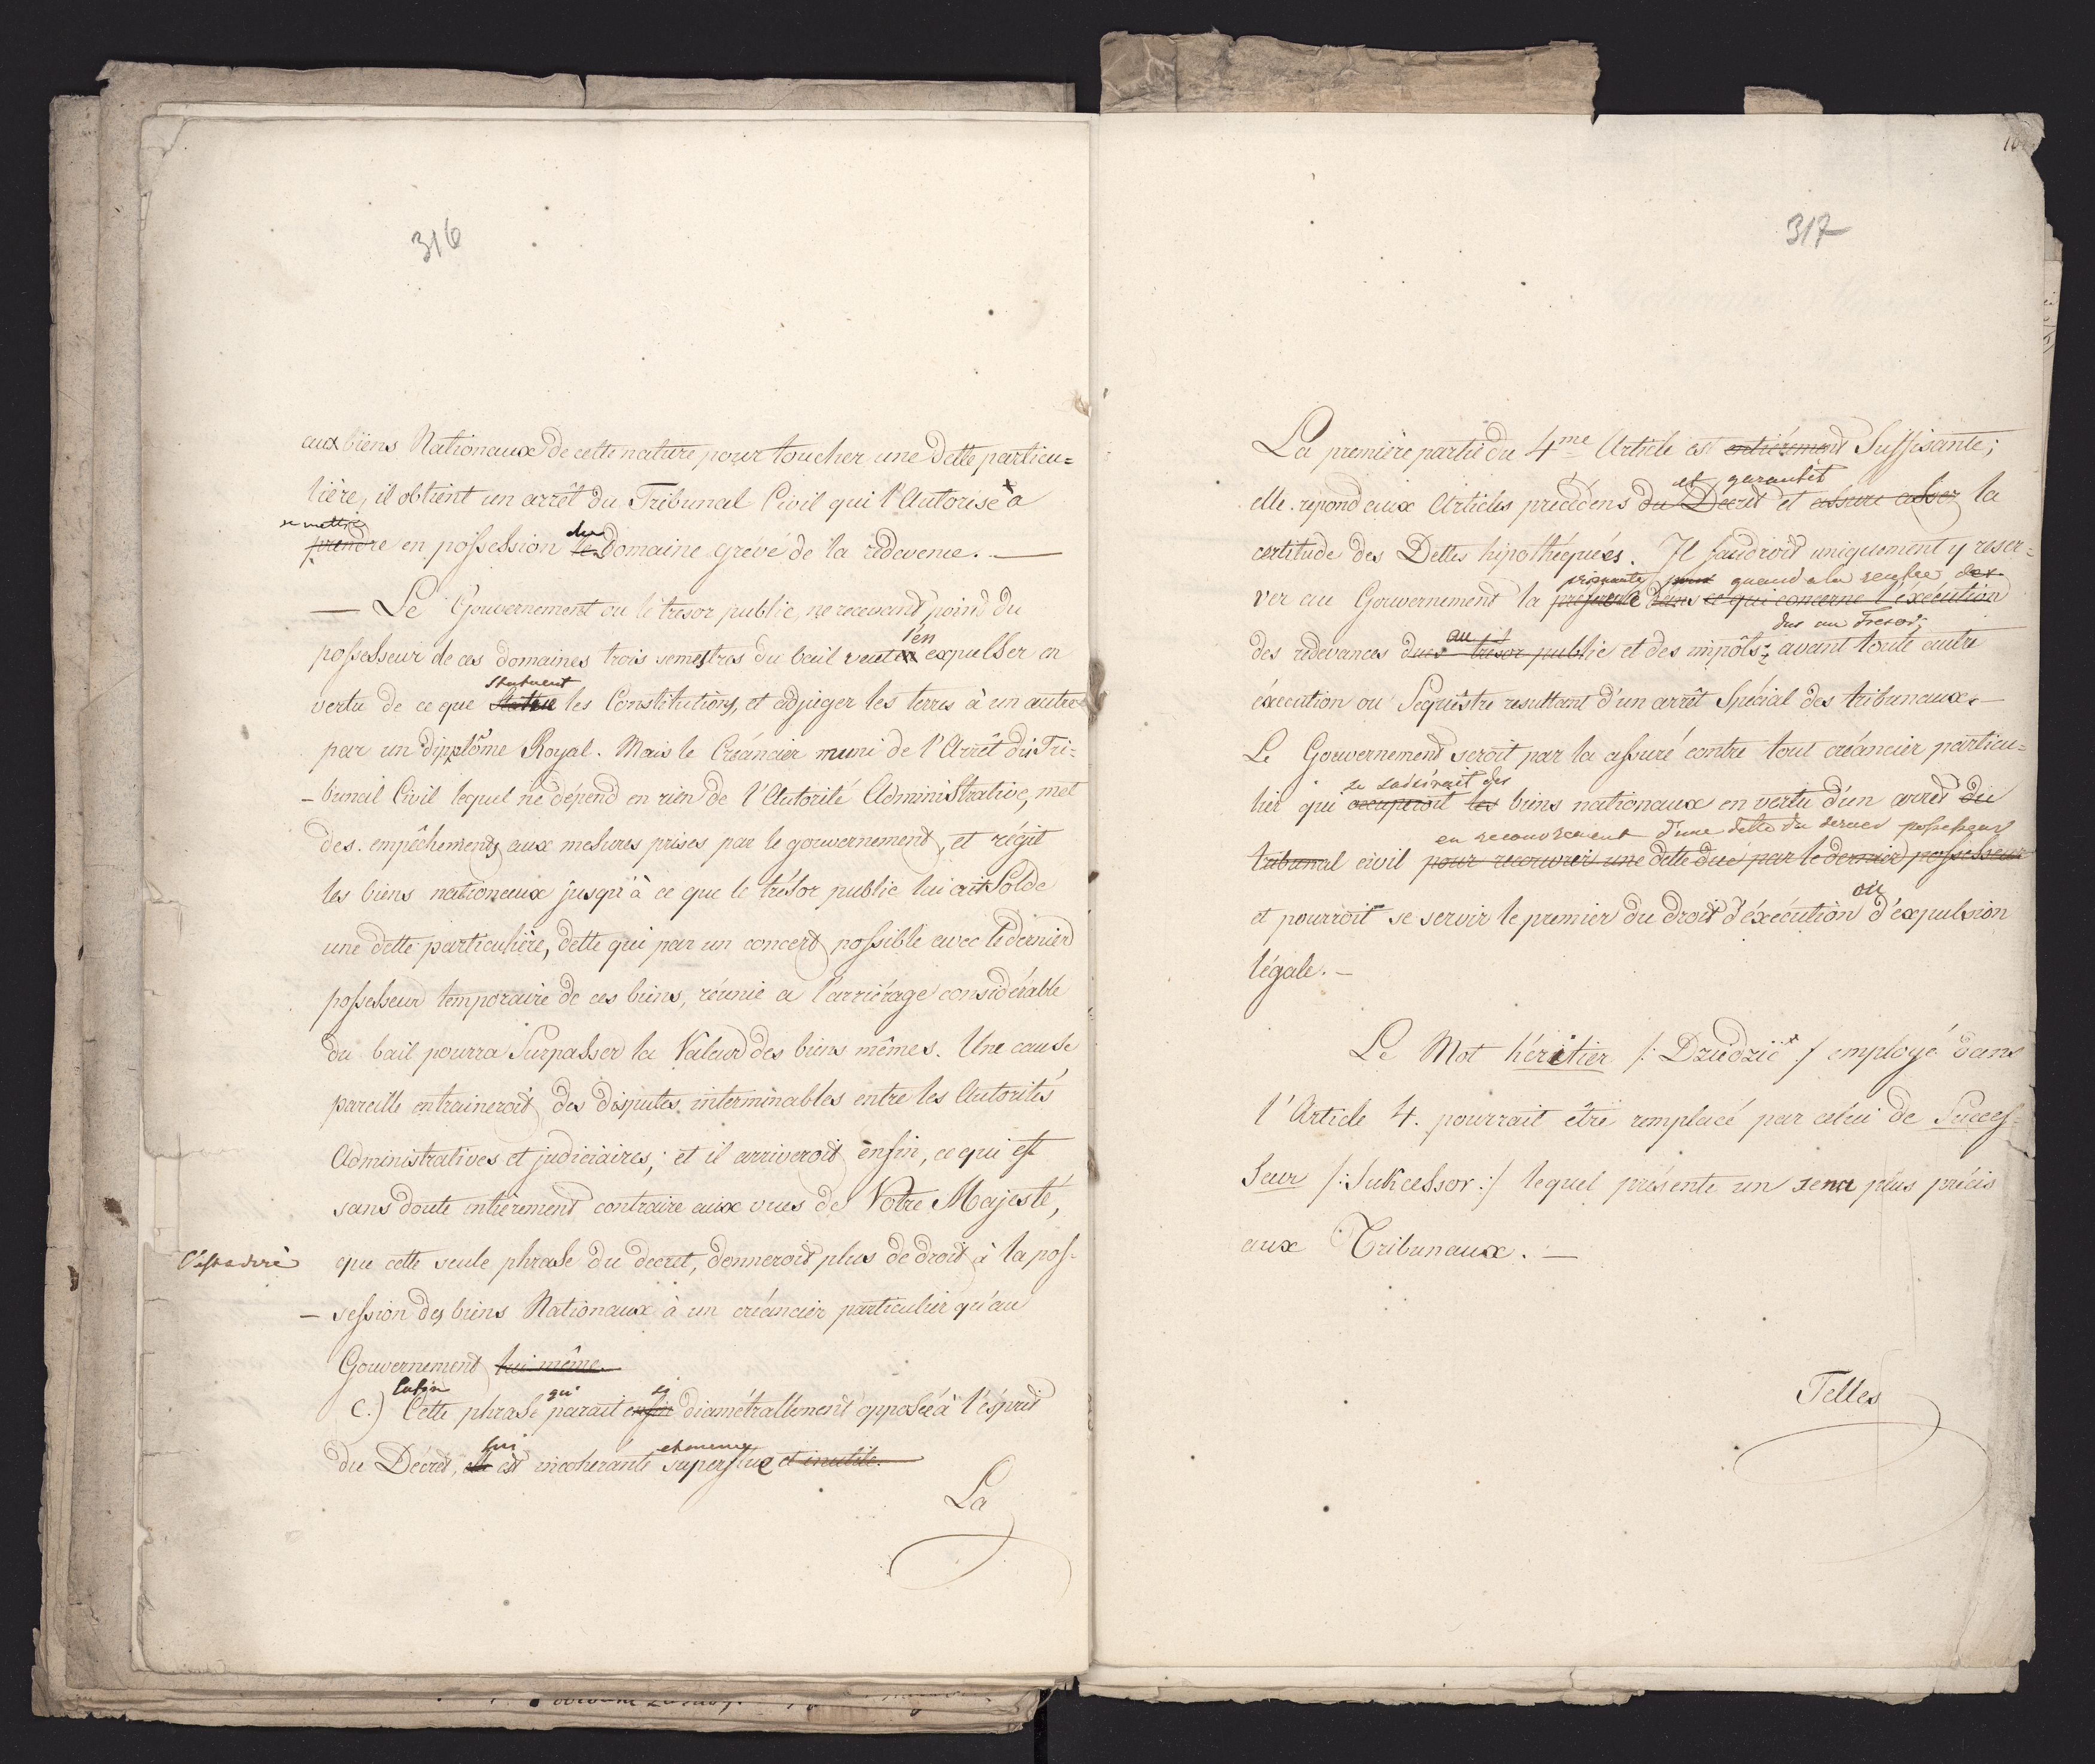 316
aux biens Nationaux de cette nature pour toucher une dette particu=
lière, il obtient un arrêt du Tribunal Civil qui l'Autorise à
se mettre
prendre en possession du le Domaine grévé de la redevence. —
— Le Gouvernement ou le tresor public, ne recevant point du
l'en
possesseur de ces domaines trois semestres du bail veut expulser en
statuent
vertu de ce que statue les Constitutions, et adjuger les terres à un autre
par un diplôme Royal. Mais le Créancier muni de l'Arrêt du Tri-
- bunal Civil lequel ne dépend en rien de l'Autorité Administrative, met
des empêchements aux mesures prises par le gouvernement, et régit
les biens nationaux jusqu'à ce que le trésor public lui ait Solde
une dette particulière, dette qui par un concert possible avec le dernier
possesseur temporaire de ces biens, réunie a l'arriérage considérable
du bail pourra Surpasser la Valeur des biens mêmes. Une cause
pareille entraineroit des disputes interminables entre les Autorités
Administratives et judiciaires; et il arriveroit enfin, ce qui est
sans doute entièrement contraire aux vues de Votre Majesté,
C'est a dire que cette seule phrase du decret, donneroit plus de droit à la pos-
- session des biens Nationaux à un créancier particulier qu'au
Gouvernement lui même.
Enfin qui
C.) Cette phrase parait enfin diamétrallement opposée à l'ésprit
du Décret, elle est incohérante superflue et inutile.
La
317
La première partie du 4me Article est entièrement Suffisante;
et garantit
elle repond aux Articles précédens du Decret et assure la
certitude des Dettes hipothéquées. Il faudroit uniquement y reser=
quand a la rentrée des
ver au Gouvernement la dans ce qui concerne l'exécution
dus au Tresor,
des redevances dues au trésor public et des impôts; avant toute autre
éxecution ou Sequèstre resultant d'un arrêt Spécial des tribunaux. —
Le Gouvernement seroit par la assuré contre tout créancier particu=
se saisirait des
lier qui occuperoit les biens nationaux en vertu d'un arrêt du
en recouvrement d'une dette du dernier possesseur
tribunal civil pour recouvrir une dette dué par le dernier possesseur
ou
et pourroit se servir le premier du droit d'éxécution d'expulsion
légale. —
Le Mot héritier /: Dziedzic :/ employé dans
l'Article 4. pourrait être remplacé par celui de Succes-
seur /: Sukcessor :/ lequel présente un sens plus précis
aux Tribunaux. —
Telles